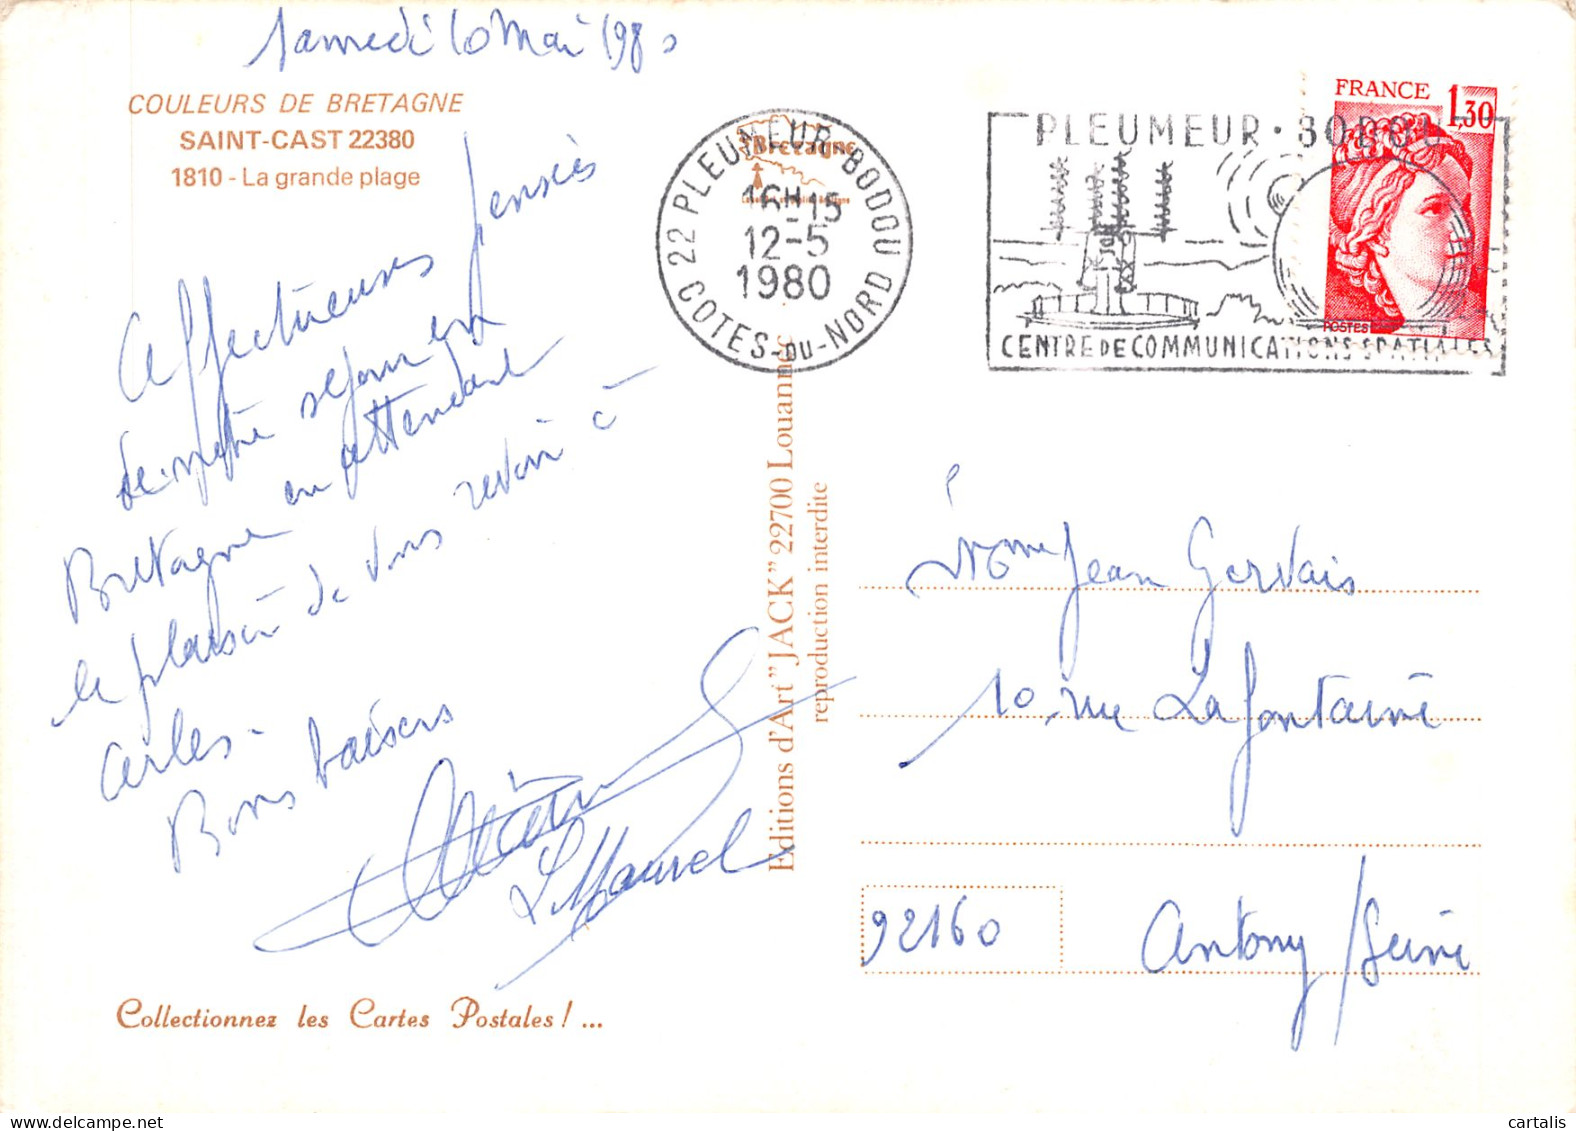 Samedi 10 Mai 1980
COULEURS DE BRETAGNE
SAINT-CAST 22380
1810 - La grande plage
Affectueuses pensées
de notre séjour en
Bretagne en attendant
le plaisir de vous revoir à
Arles.
Bons baisers
L Maurel
Collectionnez les Cartes Postales ! ...
22 PLEUMEUR-BODOU
16H15
12-5
1980
COTES-DU-NORD
Bretagne
Editions d'Art "JACK" 22700 Louannec
reproduction interdite
PLEUMEUR·BODOU
CENTRE DE COMMUNICATIONS SPATIALES
FRANCE 1,30
POSTES
Mme Jean Gervais
10 rue La fontaine
92160 Antony / Seine
cartalis